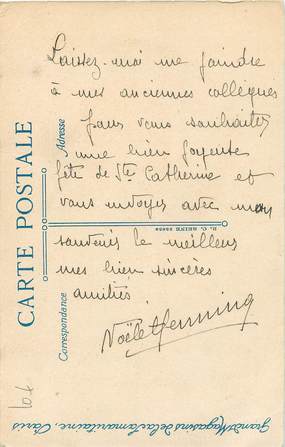 Laissez-moi me joindre
à mes anciennes collègues
pour vous souhaiter
une bien joyeuse
fête de Ste Catherine et
vous envoyer avec mon
souvenir le meilleur
mes bien sincères
amitiés.
Noële Henning
CARTE POSTALE
Adresse
Correspondance
R. C. SEINE
Grands Magasins de la Samaritaine, Paris